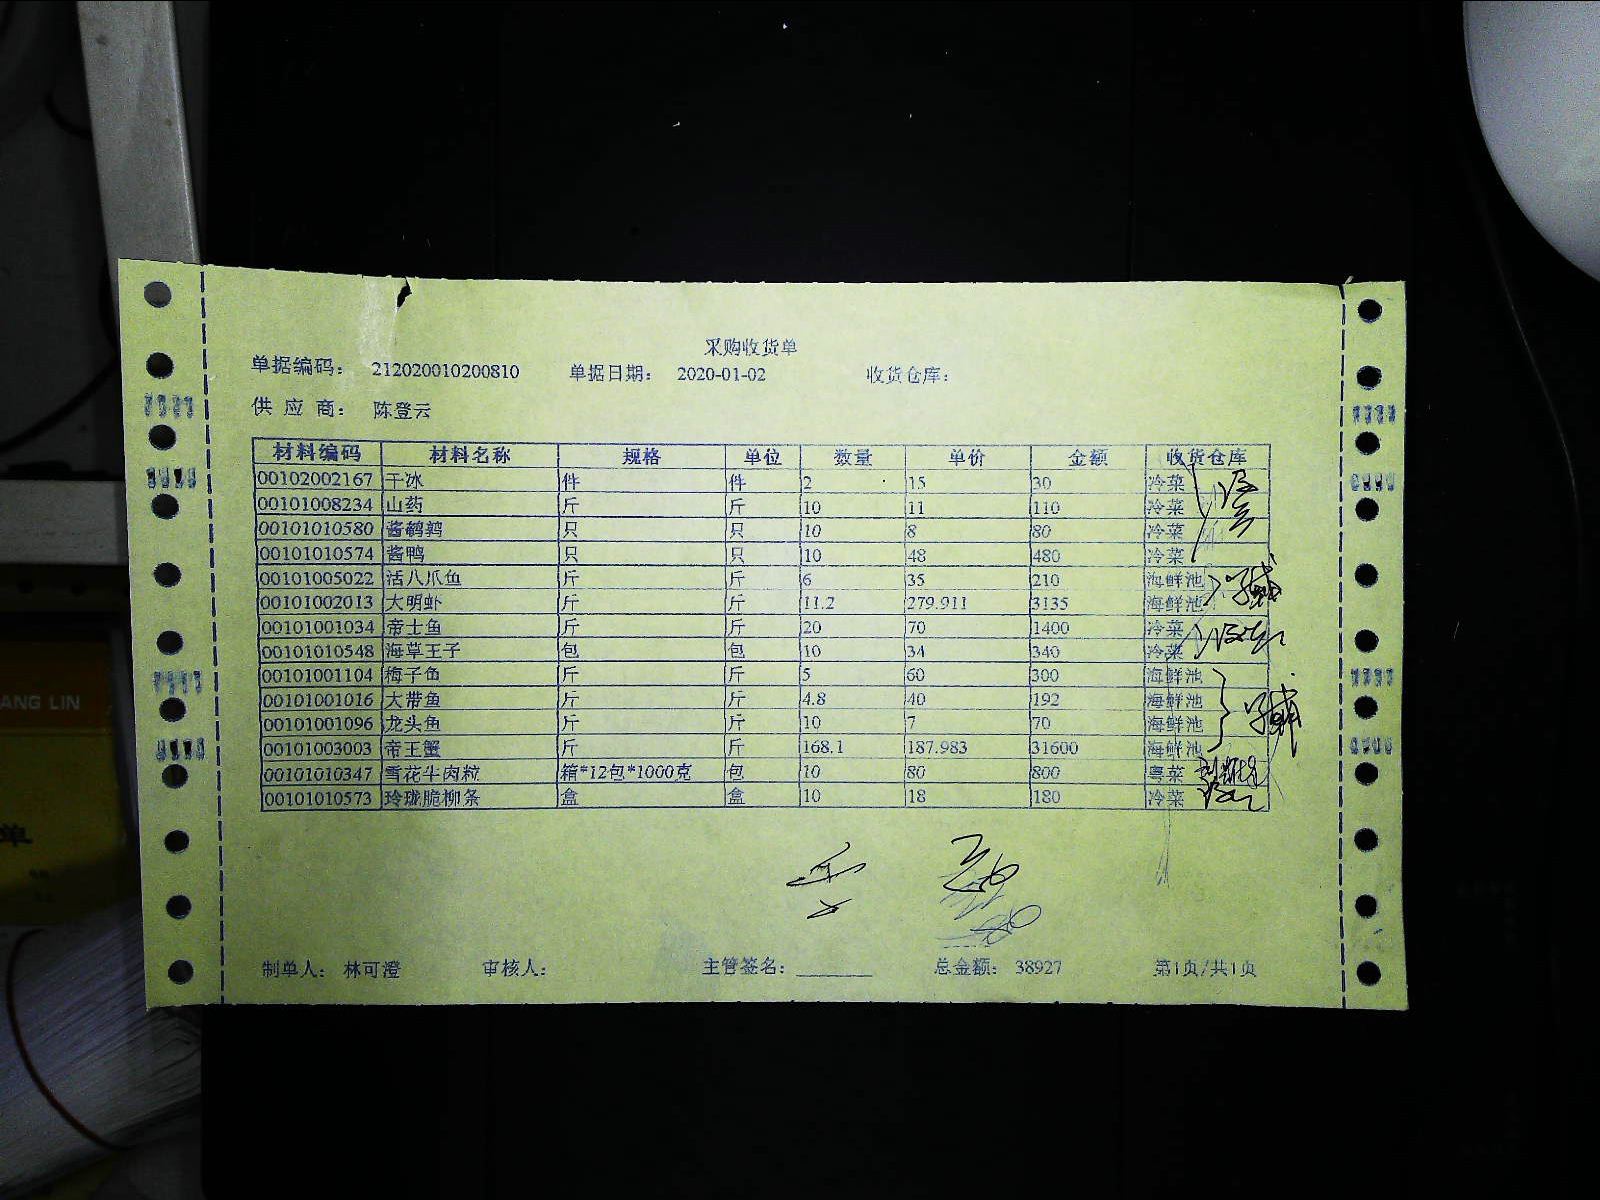 采购收货单
单据编码： 212020010200810 单据日期： 2020-01-02 收货仓库：
供 应 商： 陈登云
材料编码 材料名称 规格 单位 数量 单价 金额 收货仓库
00102002167 干冰 件 件 2 15 30 冷菜
00101008234 山药 斤 斤 10 11 110 冷菜
00101010580 酱鹌鹑 只 只 10 8 80 冷菜
00101010574 酱鸭 只 只 10 48 480 冷菜
00101005022 活八爪鱼 斤 斤 6 35 210 海鲜池
00101002013 大明虾 斤 斤 11.2 279.911 3135 海鲜池
00101001034 帝士鱼 斤 斤 20 70 1400 冷菜
00101010548 海草王子 包 包 10 34 340 冷菜
00101001104 梅子鱼 斤 斤 5 60 300 海鲜池
00101001016 大带鱼 斤 斤 4.8 40 192 海鲜池
00101001096 龙头鱼 斤 斤 10 7 70 海鲜池
00101003003 帝王蟹 斤 斤 168.1 187.983 31600 海鲜池
00101010347 雪花牛肉粒 箱*12包*1000克 包 10 80 800 粤菜
00101010573 玲珑脆柳条 盒 盒 10 18 180 冷菜
制单人： 林可澄 审核人： 主管签名： 总金额： 38927 第1页/共1页
ANG LIN
单